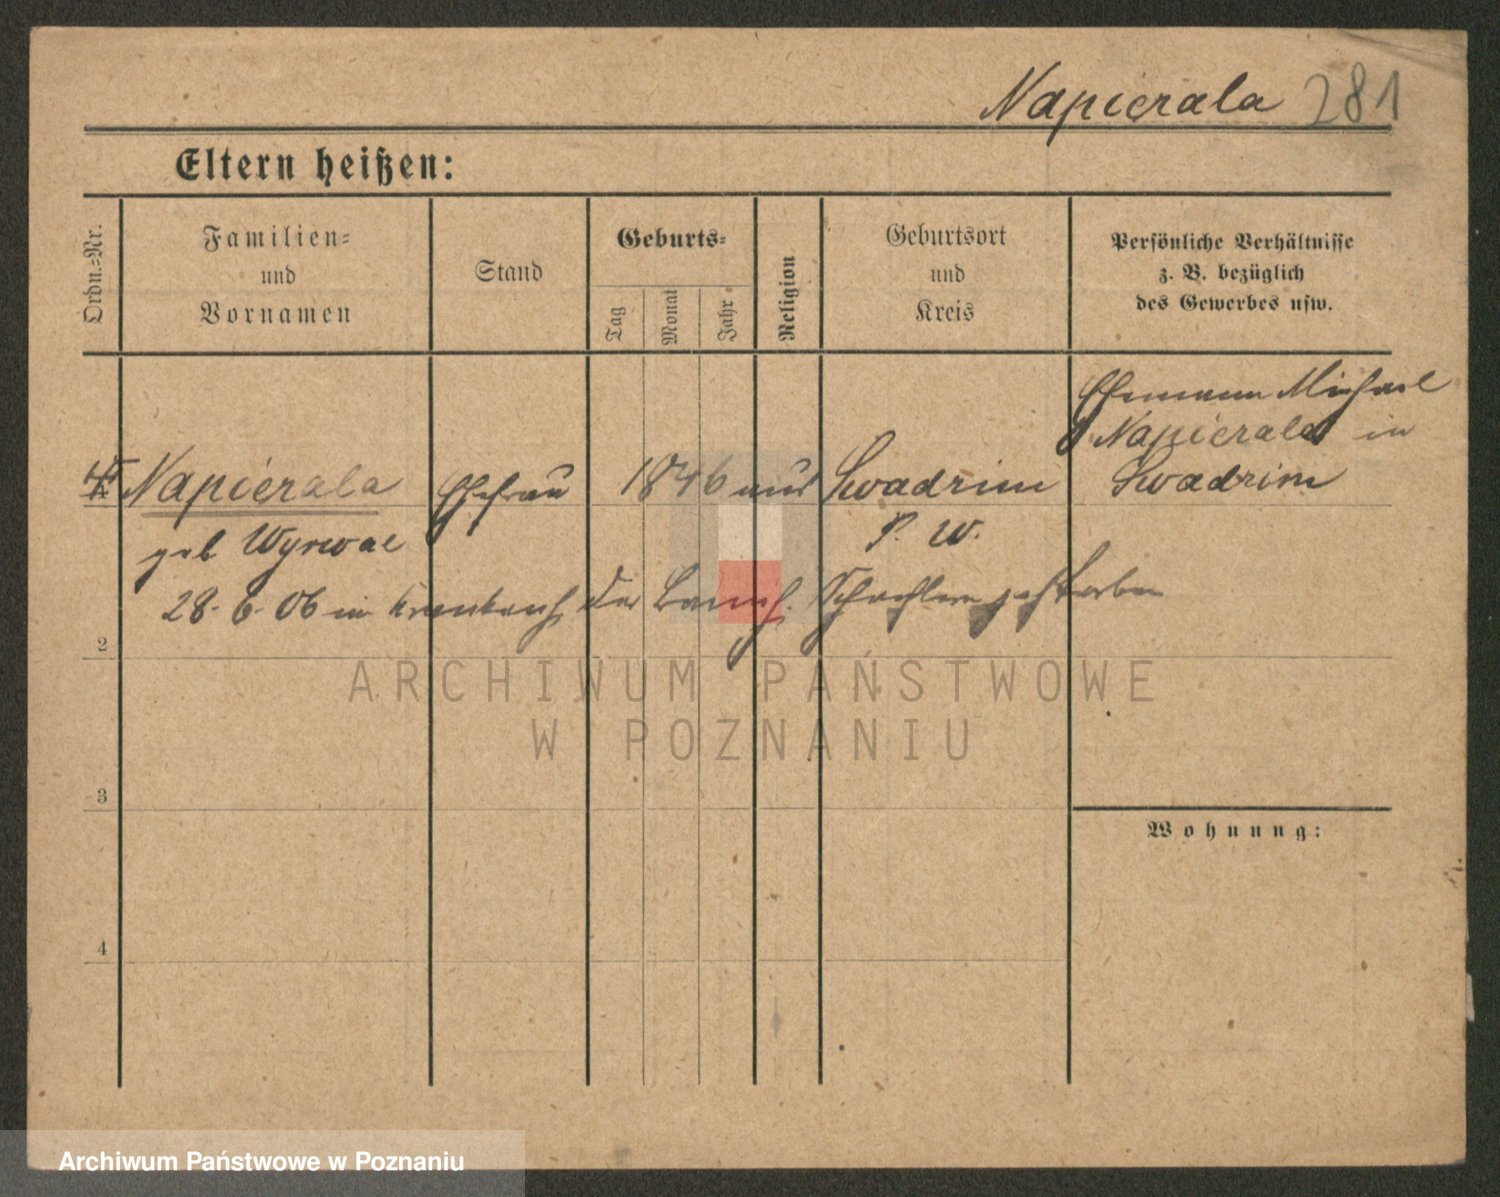 Napierala 281
Eltern heißen:
Ordn.=Nr.
Familien=
und
Vornamen
Stand
Geburts=
Tag
Monat
Jahr
Religion
Geburtsort
und
Kreis
Persönliche Verhältnisse
z. B. bezüglich
des Gewerbes usw.
Ehemann Michael
Napierala in
Swadzim
Napierala Ehefrau 1846 aus Swadzim
geb Wyrwal P. W.
28. 6. 06 in Krankenh. der Barmh. Schwestern gestorben
2
ARCHIWUM PAŃSTWOWE
W POZNANIU
3
Wohnung:
4
Archiwum Państwowe w Poznaniu